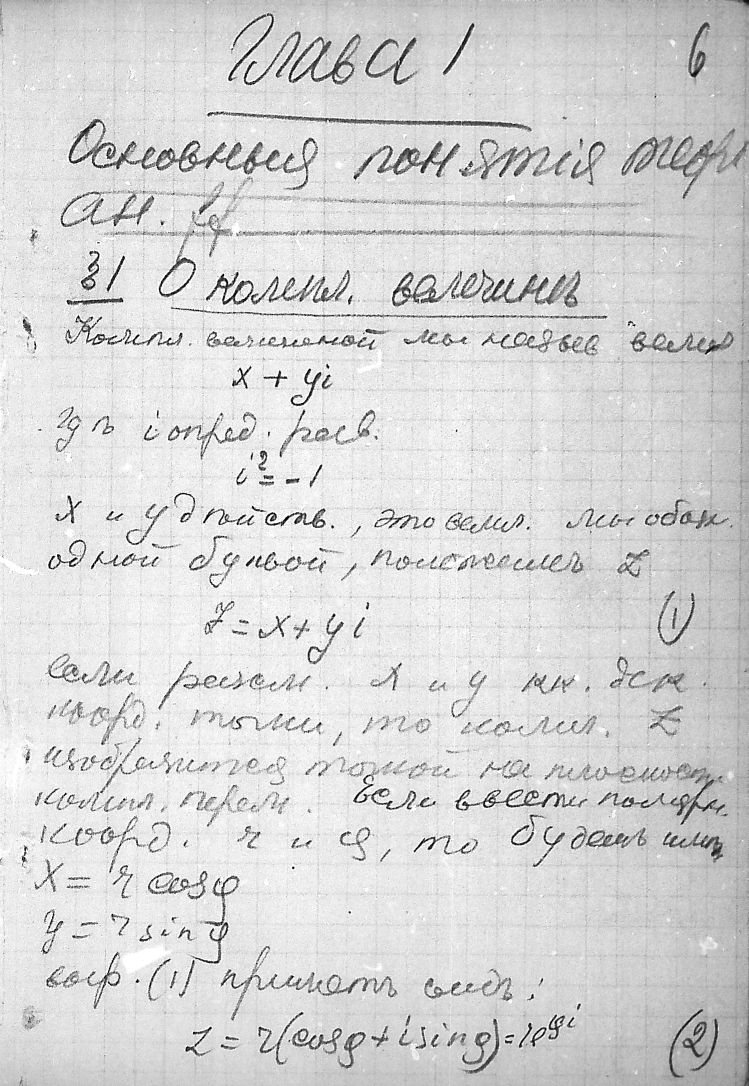 Глава 1 6
Основныя понятія теорі
ан. ff
§1 О компл. величинѣ
Компл. величиной мы назыв велич
x + yi
гдѣ i опред. рав.
i² = -1
x и y дѣйств., это велич. мы обозн.
одной буквой, положимъ z
z = x + yi (1)
если разсм. x и y кк. дек.
коорд. точки, то компл. z
изобразится точкой на плоскости
компл. перем. Если ввести полярн.
коорд. r и φ, то будемъ имѣть
x = r cosφ
y = r sinφ
выр. (1) приметъ видъ:
z = r(cosφ + i sinφ) = re^φi (2)